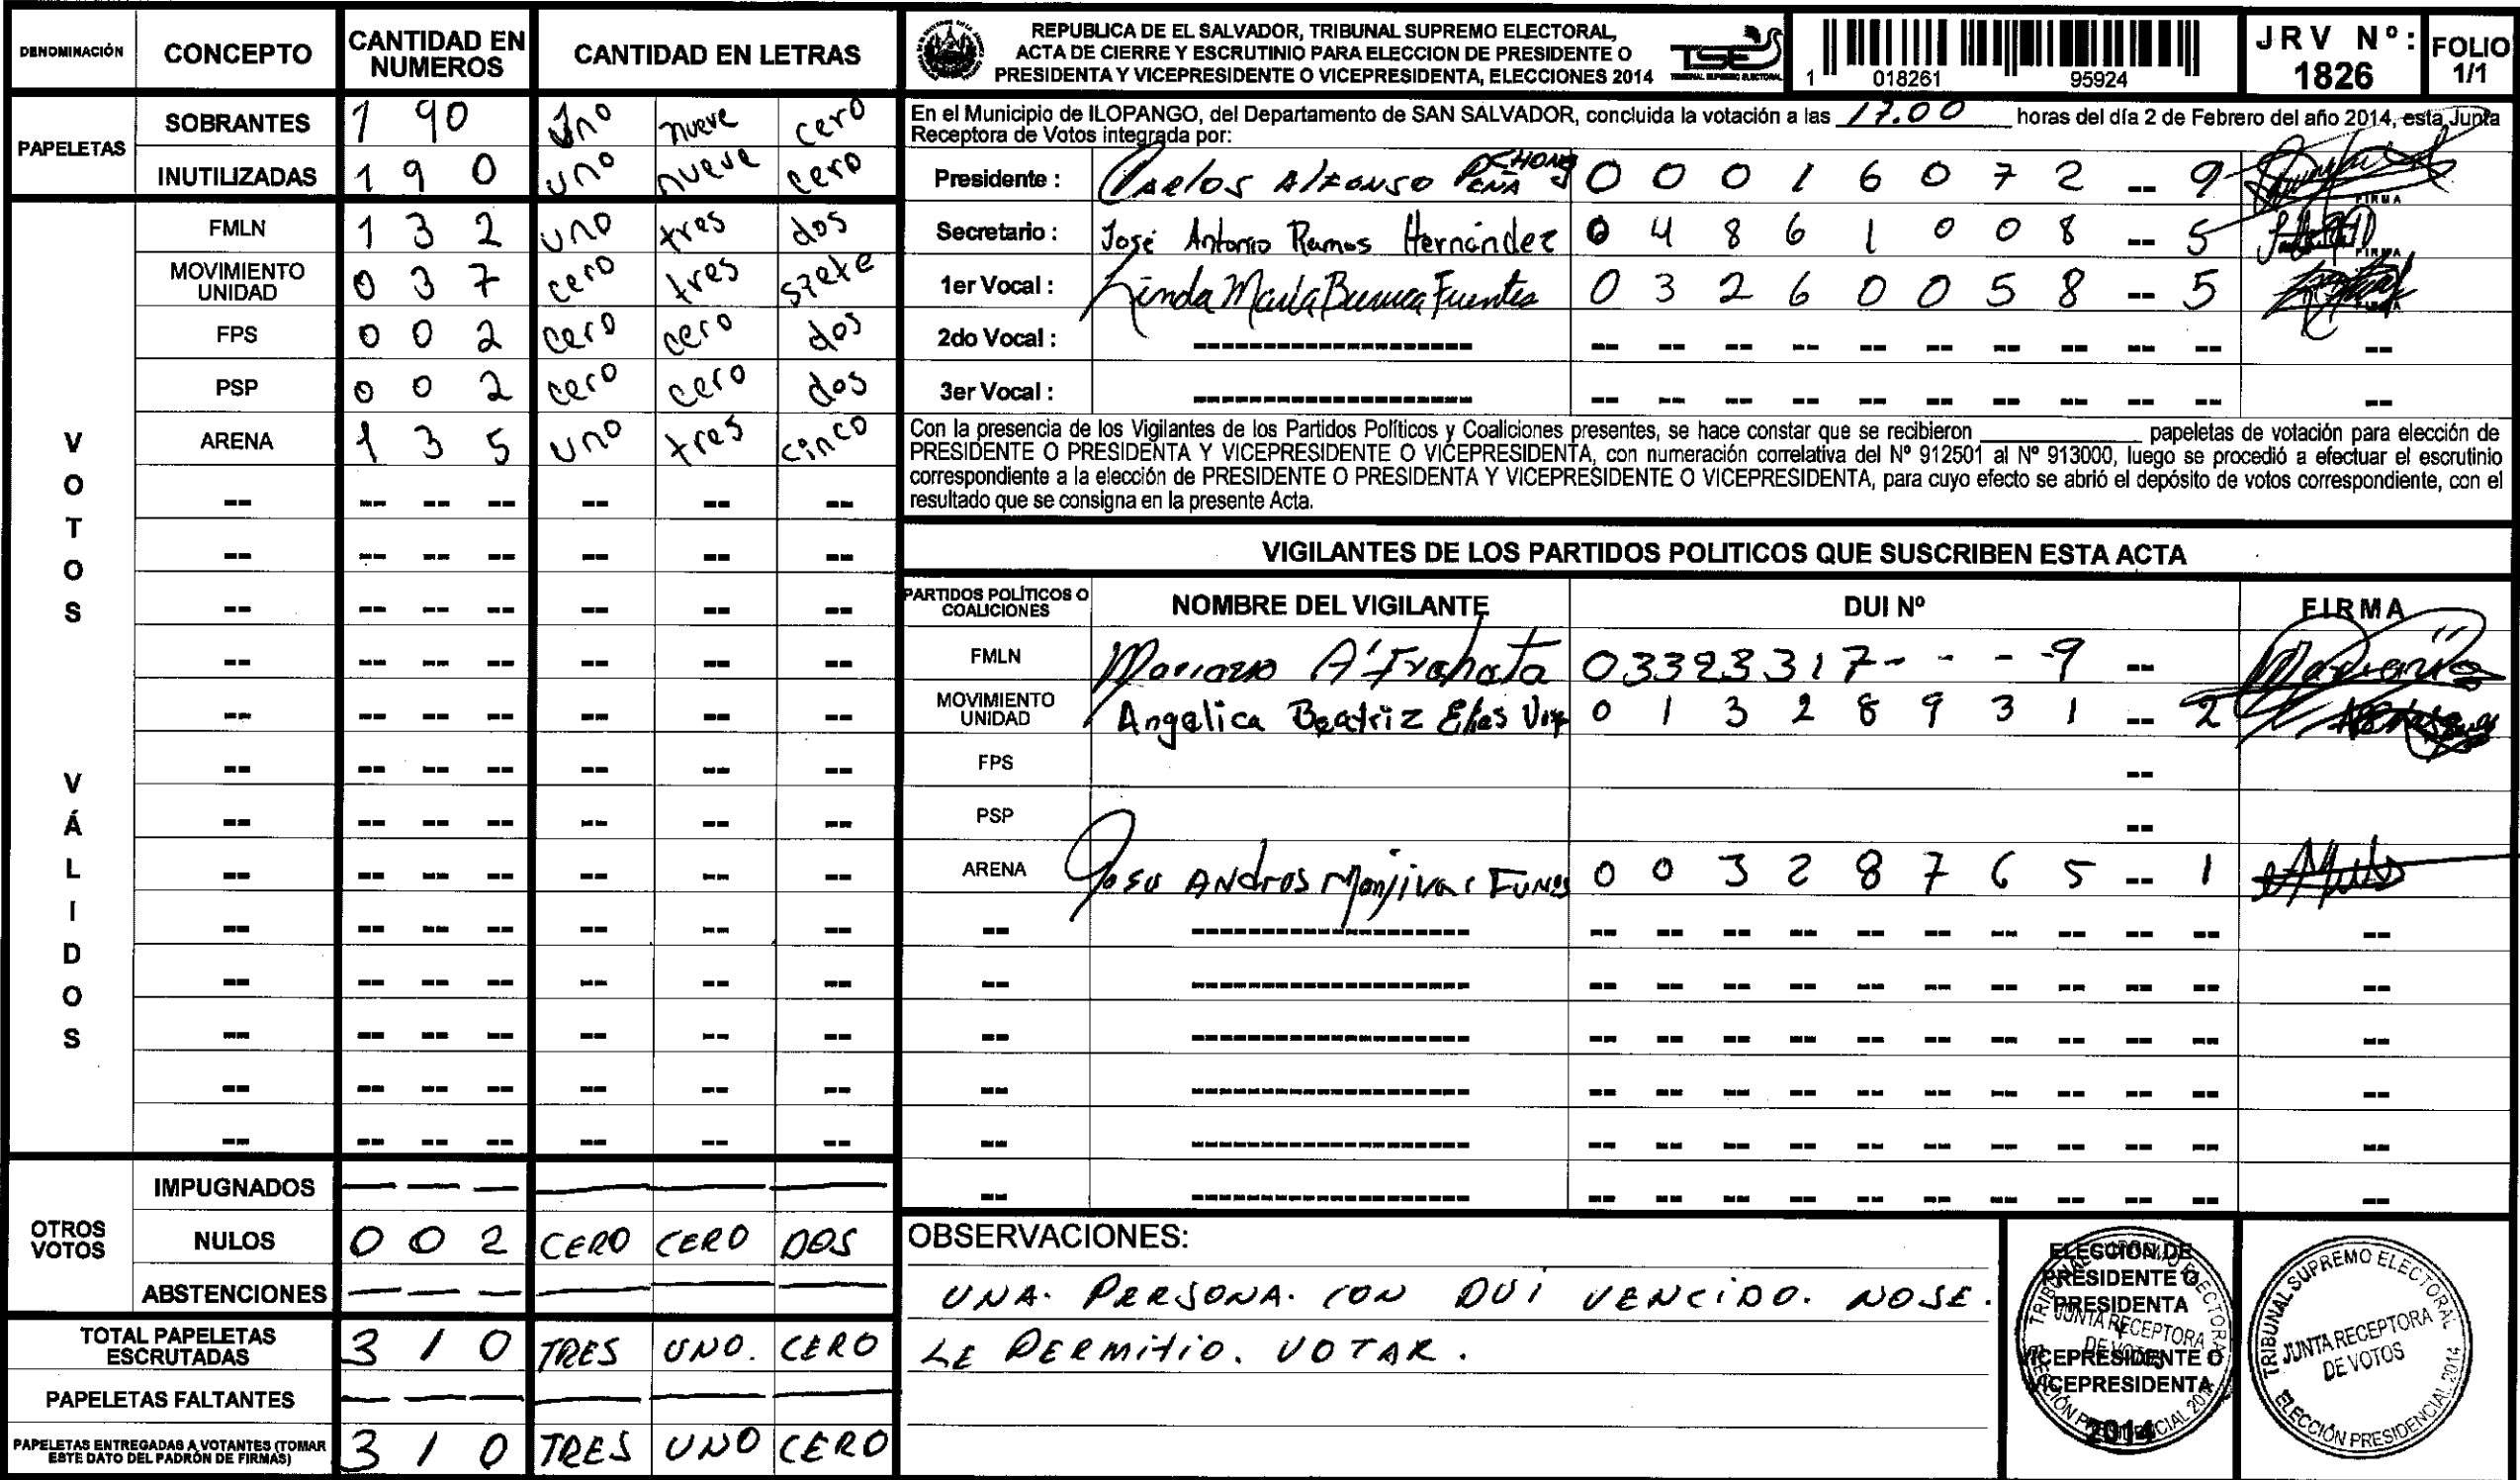 DENOMINACIÓN CONCEPTO CANTIDAD EN NUMEROS CANTIDAD EN LETRAS
PAPELETAS
SOBRANTES 1 9 0 Uno nueve cero
INUTILIZADAS 1 9 0 uno nueve cero
VOTOS VÁLIDOS
FMLN 1 3 2 uno tres dos
MOVIMIENTO UNIDAD 0 3 7 cero tres siete
FPS 0 0 2 cero cero dos
PSP 0 0 2 cero cero dos
ARENA 1 3 5 uno tres cinco
OTROS VOTOS
IMPUGNADOS — — — — — —
NULOS 0 0 2 CERO CERO DOS
ABSTENCIONES — — — — — —
TOTAL PAPELETAS ESCRUTADAS 3 1 0 TRES UNO. CERO
PAPELETAS FALTANTES — — — — — —
PAPELETAS ENTREGADAS A VOTANTES (TOMAR ESTE DATO DEL PADRÓN DE FIRMAS) 3 1 0 TRES UNO CERO
REPUBLICA DE EL SALVADOR, TRIBUNAL SUPREMO ELECTORAL,
ACTA DE CIERRE Y ESCRUTINIO PARA ELECCION DE PRESIDENTE O
PRESIDENTA Y VICEPRESIDENTE O VICEPRESIDENTA, ELECCIONES 2014
TSE
TRIBUNAL SUPREMO ELECTORAL
1 018261 95924
JRV Nº: 1826
FOLIO 1/1
En el Municipio de ILOPANGO, del Departamento de SAN SALVADOR, concluida la votación a las 17.00 horas del día 2 de Febrero del año 2014, esta Junta
Receptora de Votos integrada por:
Presidente : Carlos Alfonso Peña 0 0 0 1 6 0 7 2 -- 9 FIRMA
Secretario : José Antonio Ramos Hernández 0 4 8 6 1 0 0 8 -- 5 FIRMA
1er Vocal : Linda María Fuentes 0 3 2 6 0 0 5 8 -- 5
2do Vocal :
3er Vocal :
Con la presencia de los Vigilantes de los Partidos Políticos y Coaliciones presentes, se hace constar que se recibieron ____________ papeletas de votación para elección de
PRESIDENTE O PRESIDENTA Y VICEPRESIDENTE O VICEPRESIDENTA, con numeración correlativa del Nº 912501 al Nº 913000, luego se procedió a efectuar el escrutinio
correspondiente a la elección de PRESIDENTE O PRESIDENTA Y VICEPRESIDENTE O VICEPRESIDENTA, para cuyo efecto se abrió el depósito de votos correspondiente, con el
resultado que se consigna en la presente Acta.
VIGILANTES DE LOS PARTIDOS POLITICOS QUE SUSCRIBEN ESTA ACTA
PARTIDOS POLÍTICOS O COALICIONES NOMBRE DEL VIGILANTE DUI Nº FIRMA
FMLN 03323317- - - -9 --
MOVIMIENTO UNIDAD Angelica Beatriz 0 1 3 2 8 9 3 1 -- 2
FPS --
PSP --
ARENA Andres Menjivar Funes 0 0 3 2 8 7 6 5 -- 1
OBSERVACIONES:
UNA. PERSONA. CON DUI VENCIDO. NOSE.
LE PERMITIO. VOTAR.
ELECCION DE
PRESIDENTE O
PRESIDENTA
Y
VICEPRESIDENTE O
VICEPRESIDENTA
2014
TRIBUNAL SUPREMO ELECTORAL
JUNTA RECEPTORA
DE VOTOS
ELECCIÓN PRESIDENCIAL 2014
TRIBUNAL SUPREMO ELECTORAL
JUNTA RECEPTORA
DE VOTOS
ELECCIÓN PRESIDENCIAL 2014